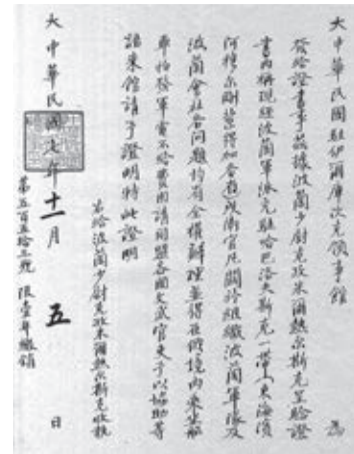 大中華民國駐伊爾庫次克領事館 為
發給證書事茲據波蘭少尉克攷米爾熱尓斯克呈驗證
書內稱現經波蘭軍派充駐哈巴洛夫斯克一帶(東海濱
阿穆尔剛薩得加各省)武官凡關於組織波蘭軍隊及
波蘭會社各問題均有全權辦理並得在俄境內乘坐
車船發軍電不給費用請同盟各國文武官夫予以協助等
語來館請予證明特此證明
右給波蘭少尉克攷米爾熱尓斯克收執
大中華民國七年十一月 五 日
第五百五拾三號 限壹年繳銷